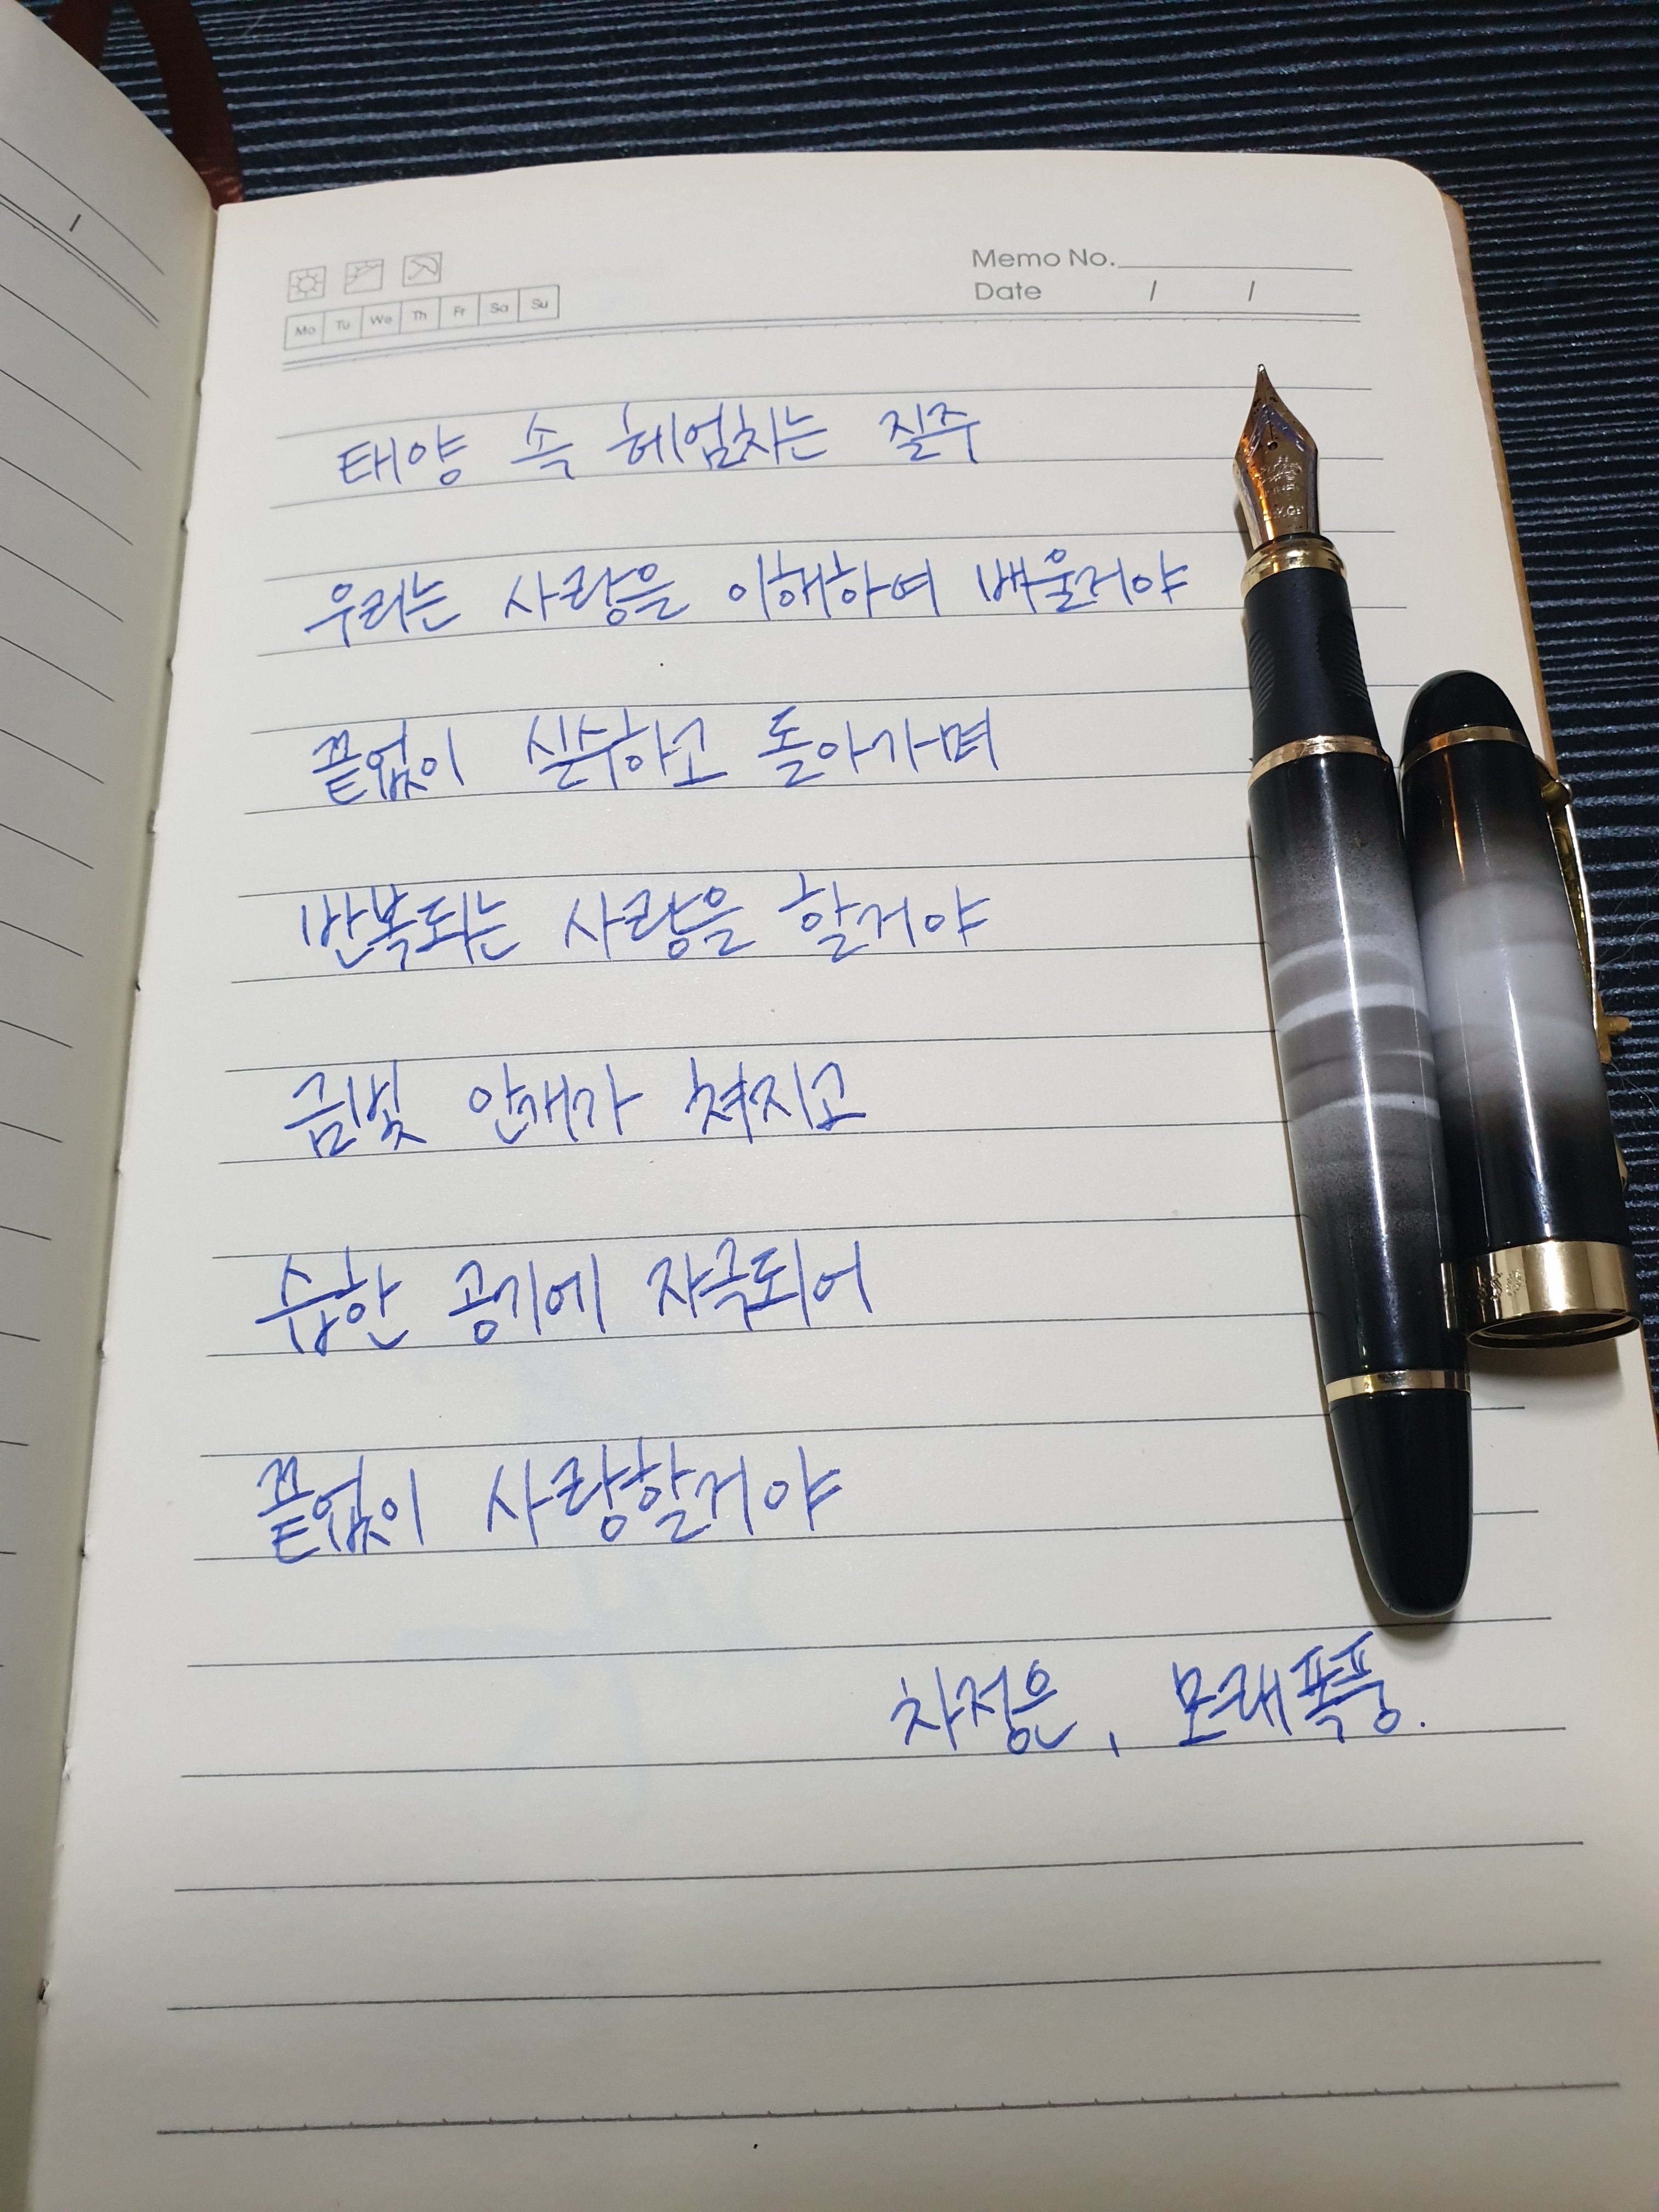 Memo No.
Date / /
Mo Tu We Th Fr Sa Su
태양 속 헤엄차는 질주
우리는 사랑을 이해하여 배울거야
끝없이 실수하고 돌아가며
반복되는 사랑을 할거야
금빛 안개가 쳐지고
습한 공기에 자극되어
끝없이 사랑할거야
차정은, 모래폭풍.